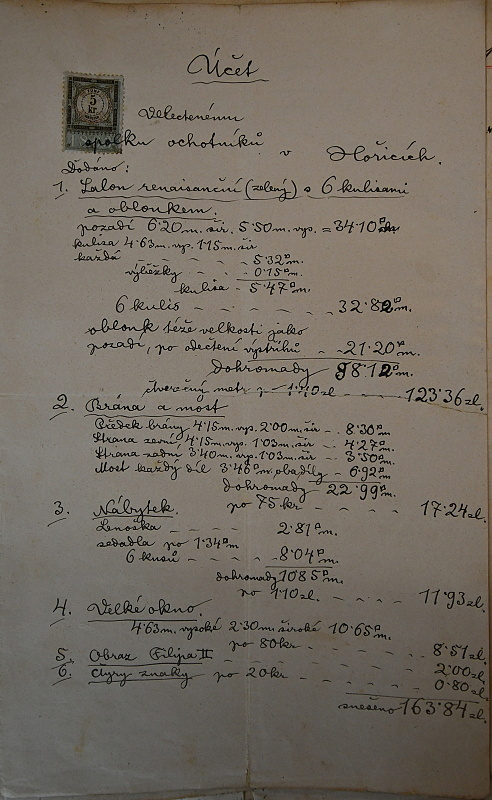 Účet
5
kr.
Velectenému
spolku ochotníků v Hořicích.
Dodáno:
1. Salon renaisanční (zelený) s 6 kulisami
a obloukem.
pozadí 6·20 m. šir. 5·50 m. vys. = 34·10 □m.
kulisa 4·63 m. vys. 1·15 m. šir
každá - - - - 5·32 □m.
výležky - - 0·15 □m.
kulisa - 5·47 □m.
6 kulis - - - - - 32·82 □m.
oblouk téže velkosti jako
pozadí, po odečtení výstřihů - - 21·20 □m.
Dohromady 88·12 □m.
čtverečný metr p - 1·40 zl - - - - 123·36 zl.
2. Brána a most
Předek brány 4·15 m. vys. 2·00 m. šir - 8·30 □m
Strana zavní 4·15 m. vys. 1·03 m. šir - 4·27 □m.
Strana zadní 3·40 m. vys. 1·03 m. šir - 3·50 □m.
Most každý díl 3·46 □m. oba díly - 6·92 □m
Dohromady 22·99 □m.
po 75 kr - - - - 17·24 zl.
3. Nábytek.
Lenoška - - - - 2·81 □m.
sedadla po 1·34 □m
6 kusů - - - - 8·04 □m.
dohromady 10·85 □m.
po 1·10 zl. - - - - 11·93 zl.
4. Velké okno.
4·63 m. vysoké 2·30 m. široké 10·65 □m.
po 80 kr - - - - 8·51 zl.
5. Obraz Filipa II - - - - - 2·00 zl.
6. čtyry znaky po 20 kr - - - - 0·80 zl.
snešeno 163·84 zl.